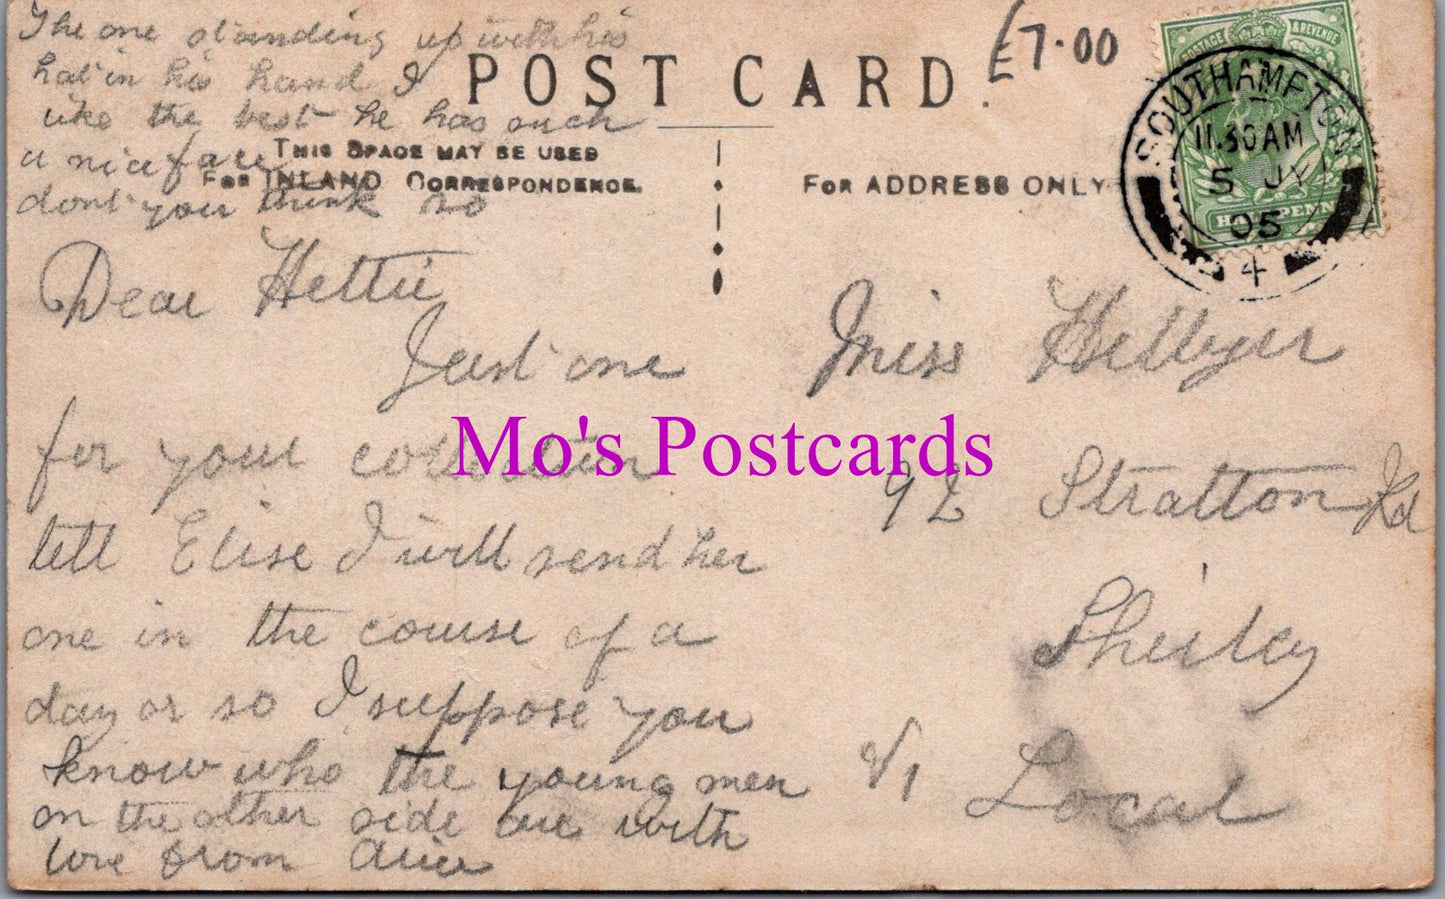 The one standing up with his
hat in his hand I
like the best he has such
a nice face
dont you think so
POST CARD.
£7.00
THIS SPACE MAY BE USED
FOR INLAND CORRESPONDENCE.
FOR ADDRESS ONLY
POSTAGE & REVENUE
HALFPENNY
SOUTHAMPTON
11.30AM
5 JY
05
4
Dear Hettie
Just one
for your collection
tell Elise I will send her
one in the course of a
day or so I suppose you
know who the young men
on the other side are with
love from Alice
Miss Hellyer
92 Stratton Rd
Shirley
Local
Mo's Postcards